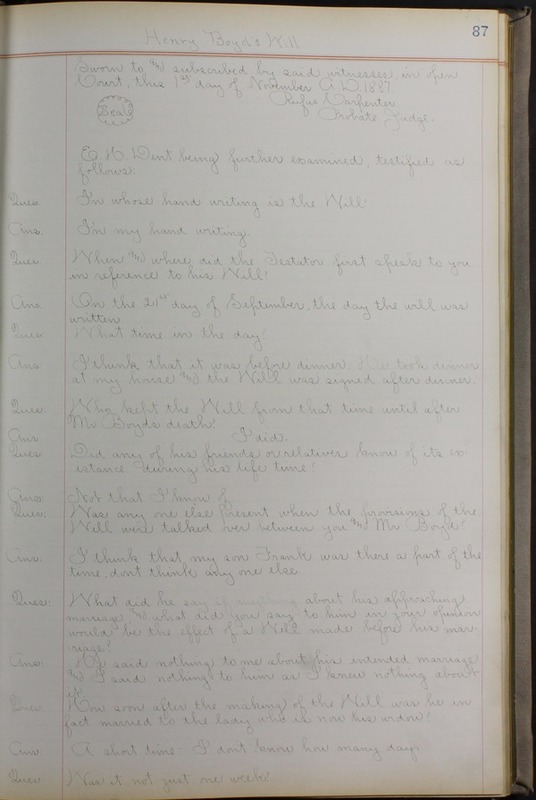 87
Henry Boyd's Will
Sworn to & subscribed by said witnesses, in open
Court, this 1st day of November A.D. 1887.
Rufus Carpenter
Seal
Probate Judge.
E. H. Dent being further examined, testified as
follows:
Ques. In whose hand writing is the Will?
Ans. In my hand writing.
Ques. When & where did the Testator first speak to you
in reference to his Will?
Ans. On the 21st day of September, the day the will was
written.
Ques. What time in the day?
Ans. I think that it was before dinner. He took dinner
at my house & the Will was signed after dinner.
Ques. Who kept the Will from that time until after
Mr Boyds death?
Ans. I did.
Ques. Did any of his friends or relatives know of its ex-
istance during his life time?
Ans. Not that I know of.
Ques. Was any one else present when the provisions of the
Will were talked over between you & Mr Boyd?
Ans. I think that my son Frank was there a part of the
time, dont think any one else.
Ques: What did he say if anything about his approaching
marriage & what did you say to him in your opinion
would be the effect of a Will made before his mar-
riage?
Ans: He said nothing to me about his intended marriage
& I said nothing to him as I knew nothing about
it.
Ques. How soon after the making of the Will was he in
fact married to the lady who is now his widow?
Ans. A short time - I don't know how many days
Ques. Was it not just one week?